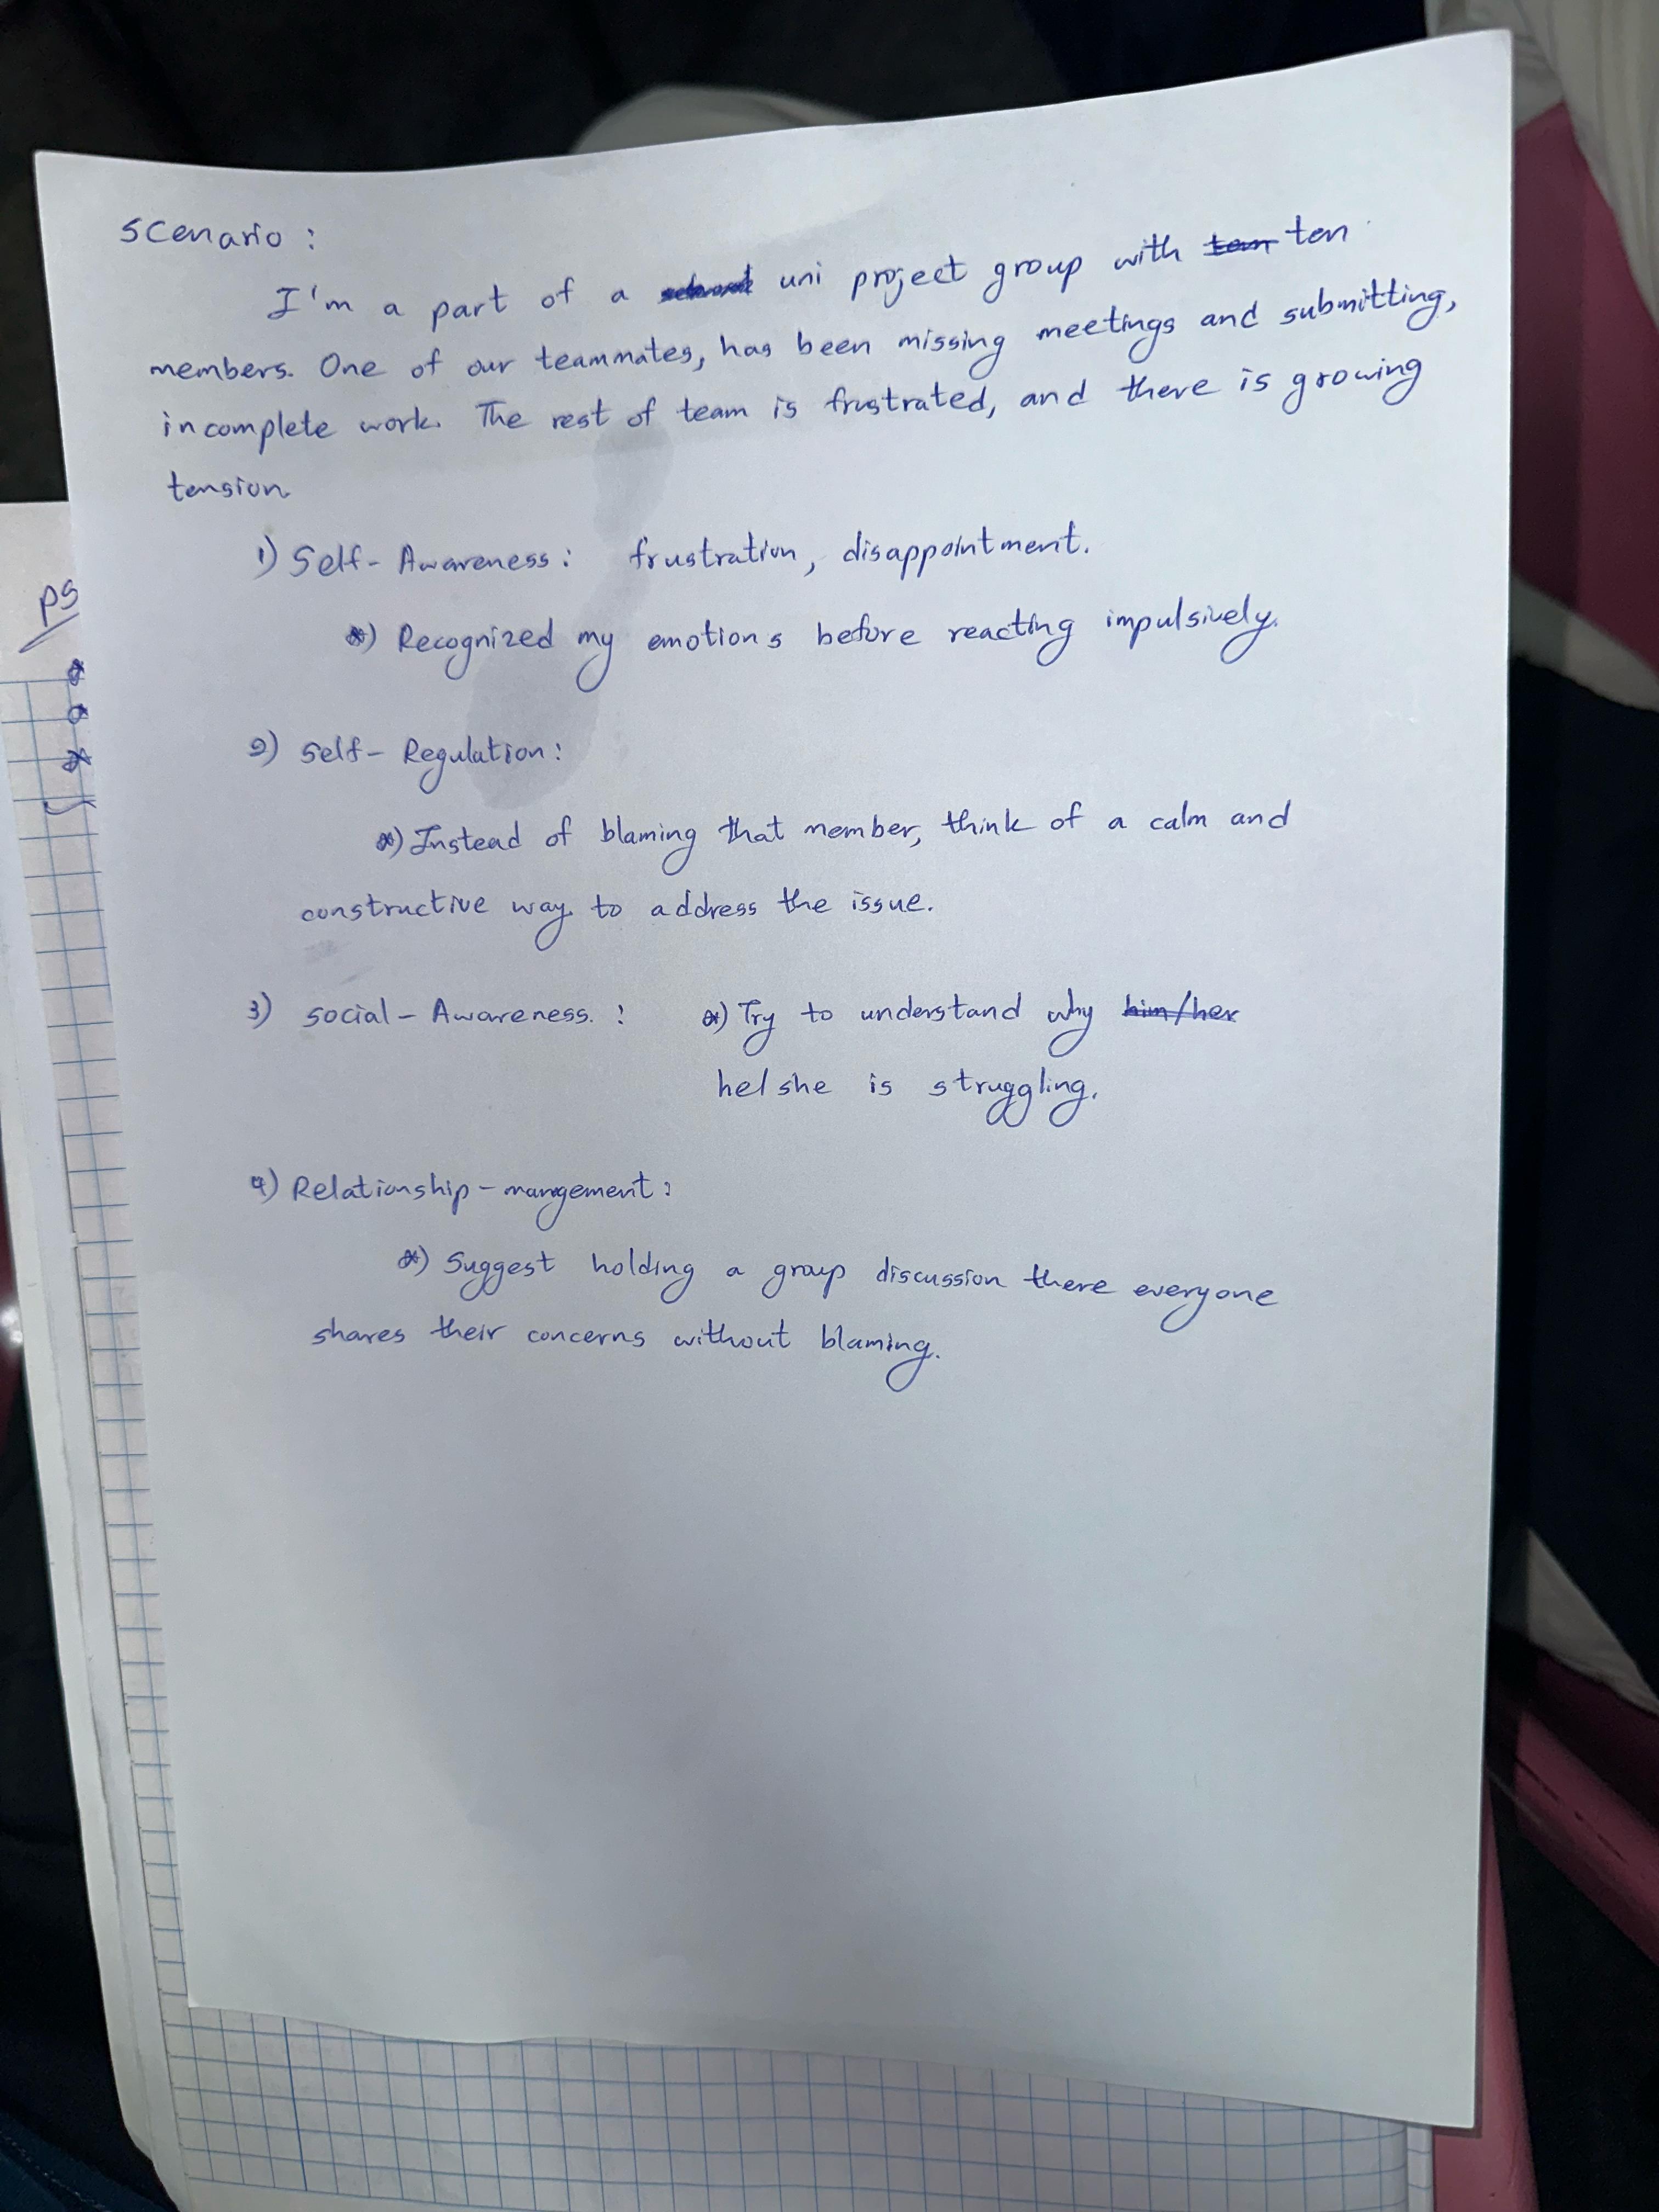 Scenario :
I'm a part of a uni project group with ten
members. One of our teammates, has been missing meetings and submitting,
incomplete work. The rest of team is frustrated, and there is growing
tension.
1) Self-Awareness: frustration, disappointment.
*) Recognized my emotions before reacting impulsively.
PS
2) Self-Regulation:
*) Instead of blaming that member, think of a calm and
constructive way to address the issue.
3) Social-Awareness. : *) Try to understand why him/her
he/she is struggling.
4) Relationship-mangement:
*) Suggest holding a group discussion there everyone
shares their concerns without blaming.